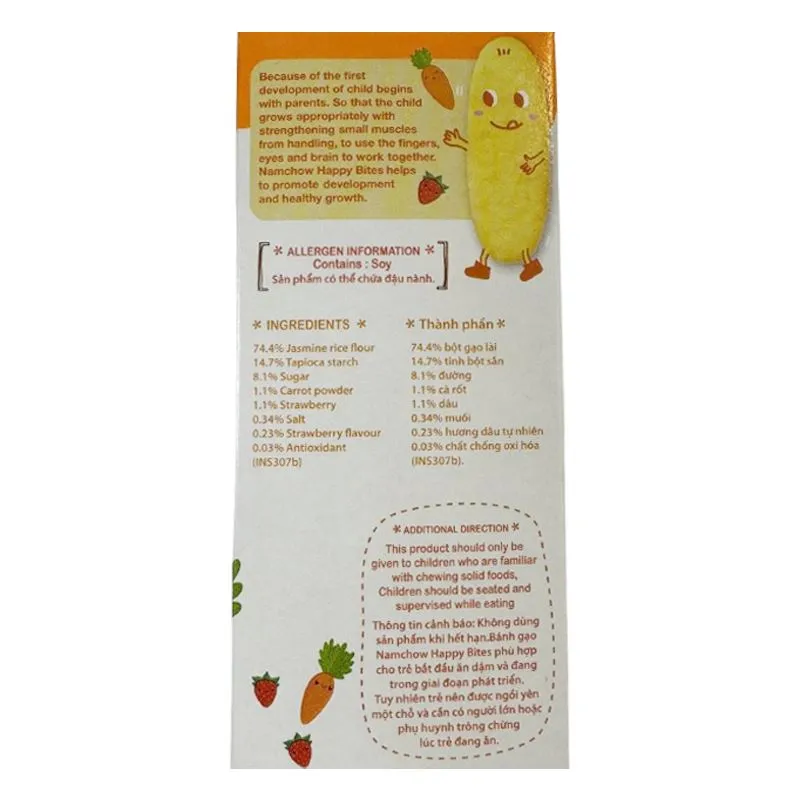 Because of the first
development of child begins
with parents. So that the child
grows appropriately with
strengthening small muscles
from handling, to use the fingers,
eyes and brain to work together.
Namchow Happy Bites helps
to promote development
and healthy growth.
* ALLERGEN INFORMATION *
Contains : Soy
Sản phẩm có thể chứa đậu nành.
* INGREDIENTS *
74.4% Jasmine rice flour
14.7% Tapioca starch
8.1% Sugar
1.1% Carrot powder
1.1% Strawberry
0.34% Salt
0.23% Strawberry flavour
0.03% Antioxidant
(INS307b)
* Thành phần *
74.4% bột gạo lài
14.7% tinh bột sắn
8.1% đường
1.1% cà rốt
1.1% dâu
0.34% muối
0.23% hương dâu tự nhiên
0.03% chất chống oxi hóa
(INS307b).
* ADDITIONAL DIRECTION *
This product should only be
given to children who are familiar
with chewing solid foods,
Children should be seated and
supervised while eating
Thông tin cảnh báo: Không dùng
sản phẩm khi hết hạn.Bánh gạo
Namchow Happy Bites phù hợp
cho trẻ bắt đầu ăn dặm và đang
trong giai đoạn phát triển.
Tuy nhiên trẻ nên được ngồi yên
một chỗ và cần có người lớn hoặc
phụ huynh trông chừng
lúc trẻ đang ăn.